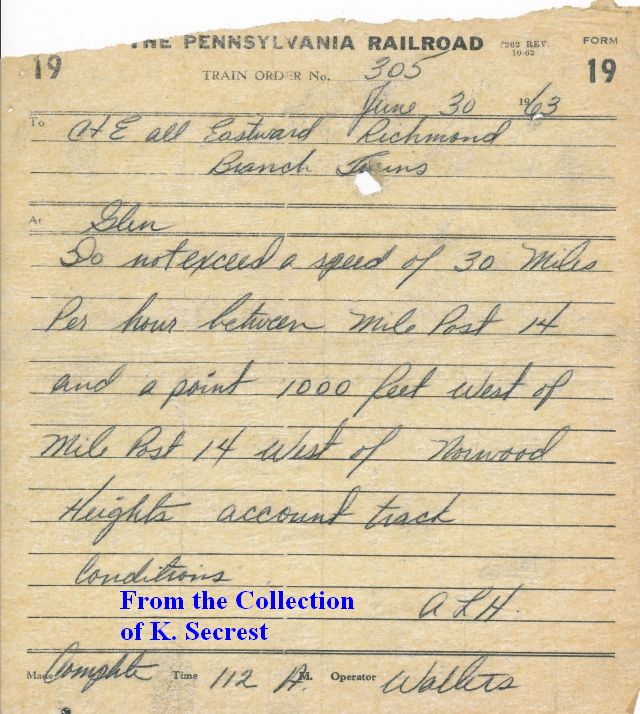 THE PENNSYLVANIA RAILROAD
7262 REV. 10-62
FORM
19
TRAIN ORDER No. 305
19
June 30 1963
To C&E all Eastward Richmond
Branch Trains
At Glen
Do not exceed a speed of 30 Miles
Per hour between Mile Post 14
and a point 1000 feet West of
Mile Post 14 West of Norwood
Heights account track
Conditions
From the Collection
of K. Secrest
A L H.
Made Complete Time 112 A. M. Operator Walters